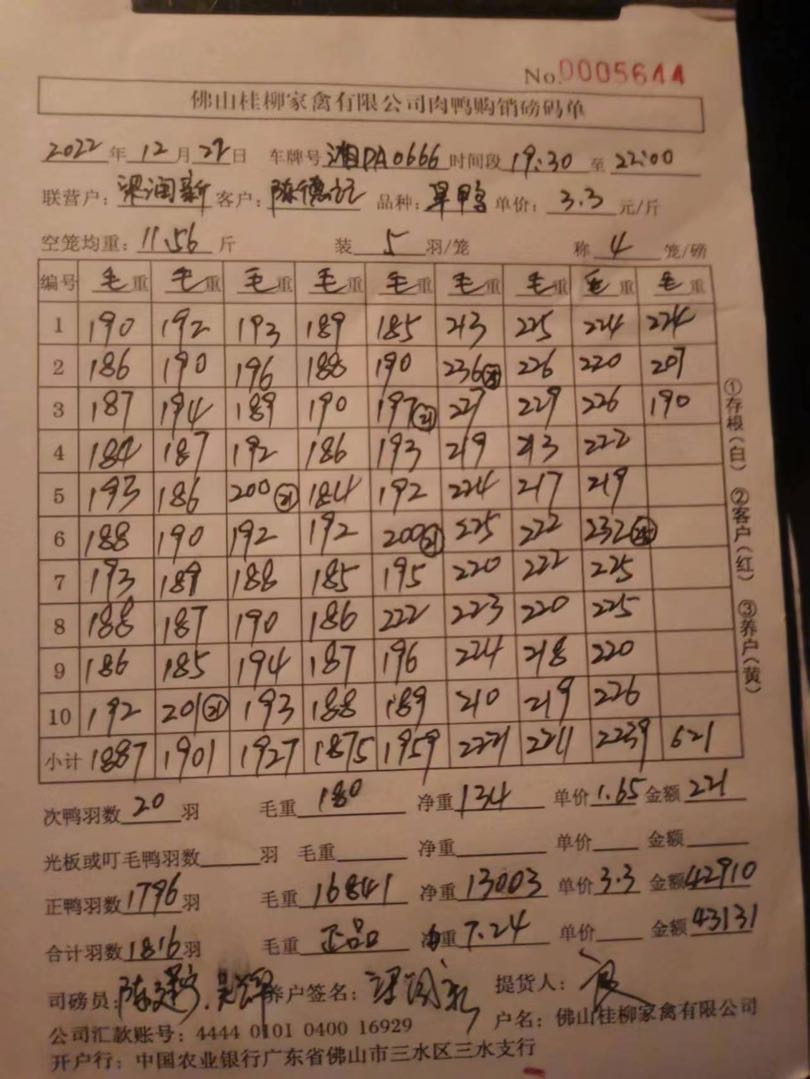 No.0005644
佛山桂柳家禽有限公司肉鸭购销磅码单
2022年12月27日 车牌号湘DA0666时间段19:30至22:00
联营户：梁润新 客户：陈德记 品种：旱鸭 单价：3.3元/斤
空笼均重：11.56斤 装5羽/笼 称4笼/磅
编号 毛重 毛重 毛重 毛重 毛重 毛重 毛重 毛重 毛重
1 190 192 193 189 185 213 225 224 224
2 186 190 196 188 190 236 226 220 207
3 187 194 189 190 197(21) 227 229 226 190
4 184 187 192 186 193 219 213 222
5 193 186 200(21) 184 192 224 217 219
6 188 190 192 192 200(21) 225 222 232
7 193 189 188 185 195 220 222 225
8 188 187 190 186 222 223 220 225
9 186 185 194 187 196 224 218 220
10 192 201(21) 193 188 189 210 219 226
小计 1887 1901 1927 1875 1959 2221 2211 2239 621
次鸭羽数20羽 毛重180 净重134 单价1.65金额221
光板或叮毛鸭羽数 羽 毛重 净重 单价 金额
正鸭羽数1796羽 毛重16841 净重13003 单价3.3 金额42910
合计羽数1816羽 毛重正品 重7.24 单价 金额43131
司磅员： 养户签名： 提货人：
公司汇款账号：4444 0101 0400 16929 户名：佛山桂柳家禽有限公司
开户行：中国农业银行广东省佛山市三水区三水支行
①存根(白) ②客户(红) ③养户(黄)